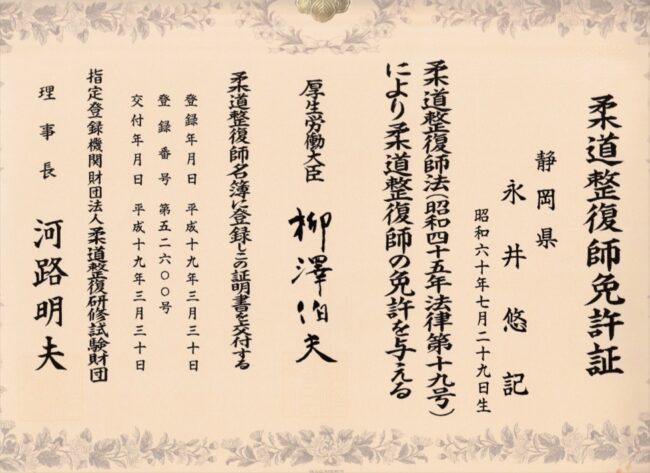 柔道整復師免許証
静岡県
永井悠記
昭和六十年七月二十九日生
柔道整復師法(昭和四十五年法律第十九号)
により柔道整復師の免許を与える
厚生労働大臣 柳澤伯夫
柔道整復師名簿に登録しこの証明書を交付する
登録年月日 平成十九年三月三十日
登録番号 第五二六〇〇号
交付年月日 平成十九年三月三十日
指定登録機関財団法人柔道整復研修試験財団
理事長 河路明夫